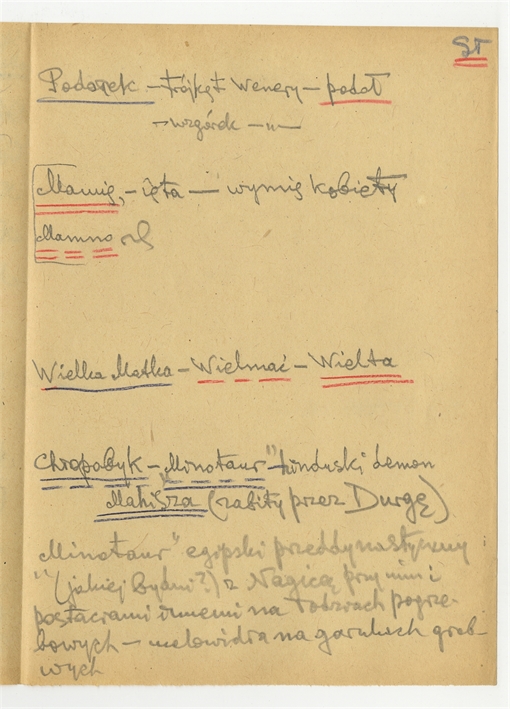 ST
Podołek – trójkąt Wenery – podoł
– wzgórek – " –
Mamię, – ięta — wymię kobiety
Mamno
Wielka Matka – Wielmać – Wielta
Chropobyk – „Minotaur" – hinduski demon
Mahisza (zabity przez Durgę)
„Minotaur" egipski przeddynastyczny
(jakiej bydni?) z Nagicą przy nim i
postaciami innemi na łodziach pogrze-
bowych – malowidła na garnkach grob-
wych